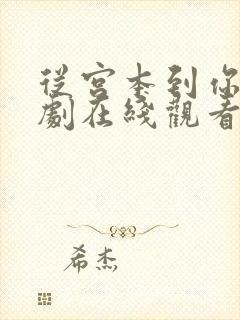 從宮本到你
劇在綫觀看
希杰